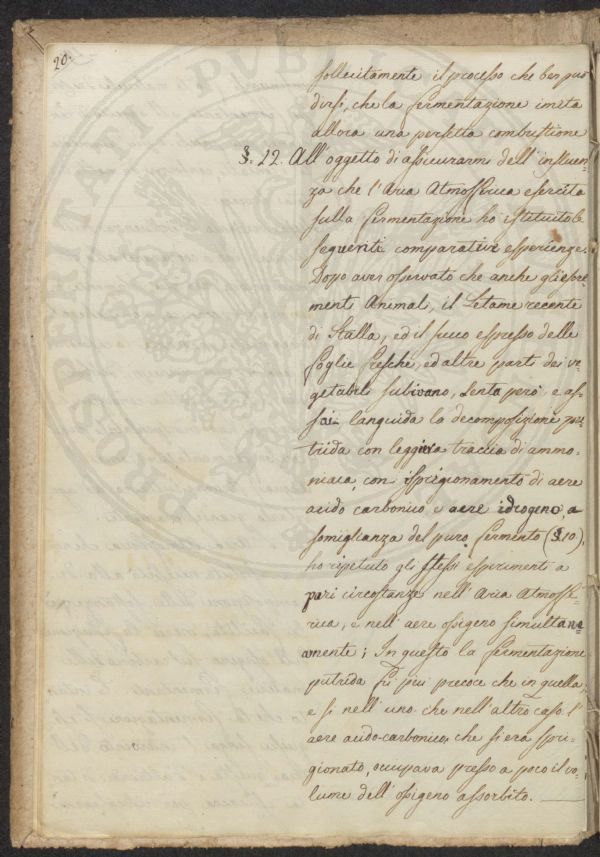 20.
sollecitamente il processo che ben può
dirsi, che la fermentazione imita
allora una perfetta combustione
§. 22. All'oggetto di assicurarmi dell'influen-
za che l'Aria Atmosferica esercita
sulla fermentazione ho istituito le
seguenti comparative esperienze.
Doppo aver osservato che anche gli escre-
menti Animali, il Letame recente
di Stalla, ed il succo espresso delle
foglie fresche, ed altre parti dei ve-
getabili subivano, lenta però, e as-
sai languida la decomposizione pu-
trida con leggiera traccia di ammo-
niaca, con isprigionamento di aere
acido carbonico e aere idrogeno, a
somiglianza del puro fermento (§.10).
ho ripetuto gli stessi esperimenti a
pari circostanze nell'Aria Atmosfe-
rica, e nell'aere ossigeno simultane-
amente; In questo la fermentazione
putrida fù piu precoce che in quella,
e sì nell'uno che nell'altro caso l'
aere acido-carbonico, che si era spri-
gionato, occupava presso a poco il vo-
lume dell'ossigeno assorbito.
PROSPERITATI PUBLICAE